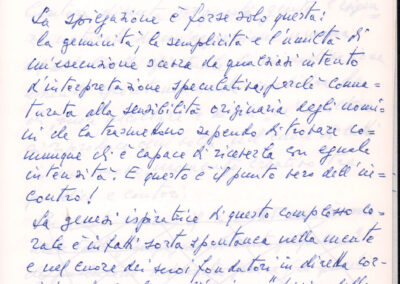 La spiegazione è forse solo questa:
la genuinità, la semplicità e l'umiltà di
un'esecuzione scevra da qualsiasi intento
d'interpretazione speculativa, perché conna-
turata alla sensibilità originaria degli uomi-
ni che la trasmettono sapendo di trovare co-
munque chi è capace di riceverla con eguale
intensità. E questo è il punto vero dell'in-
contro!
La genesi ispiratrice di questo complesso co-
rale è infatti sorta spontanea nella mente
e nel cuore dei suoi fondatori in diretta cor-